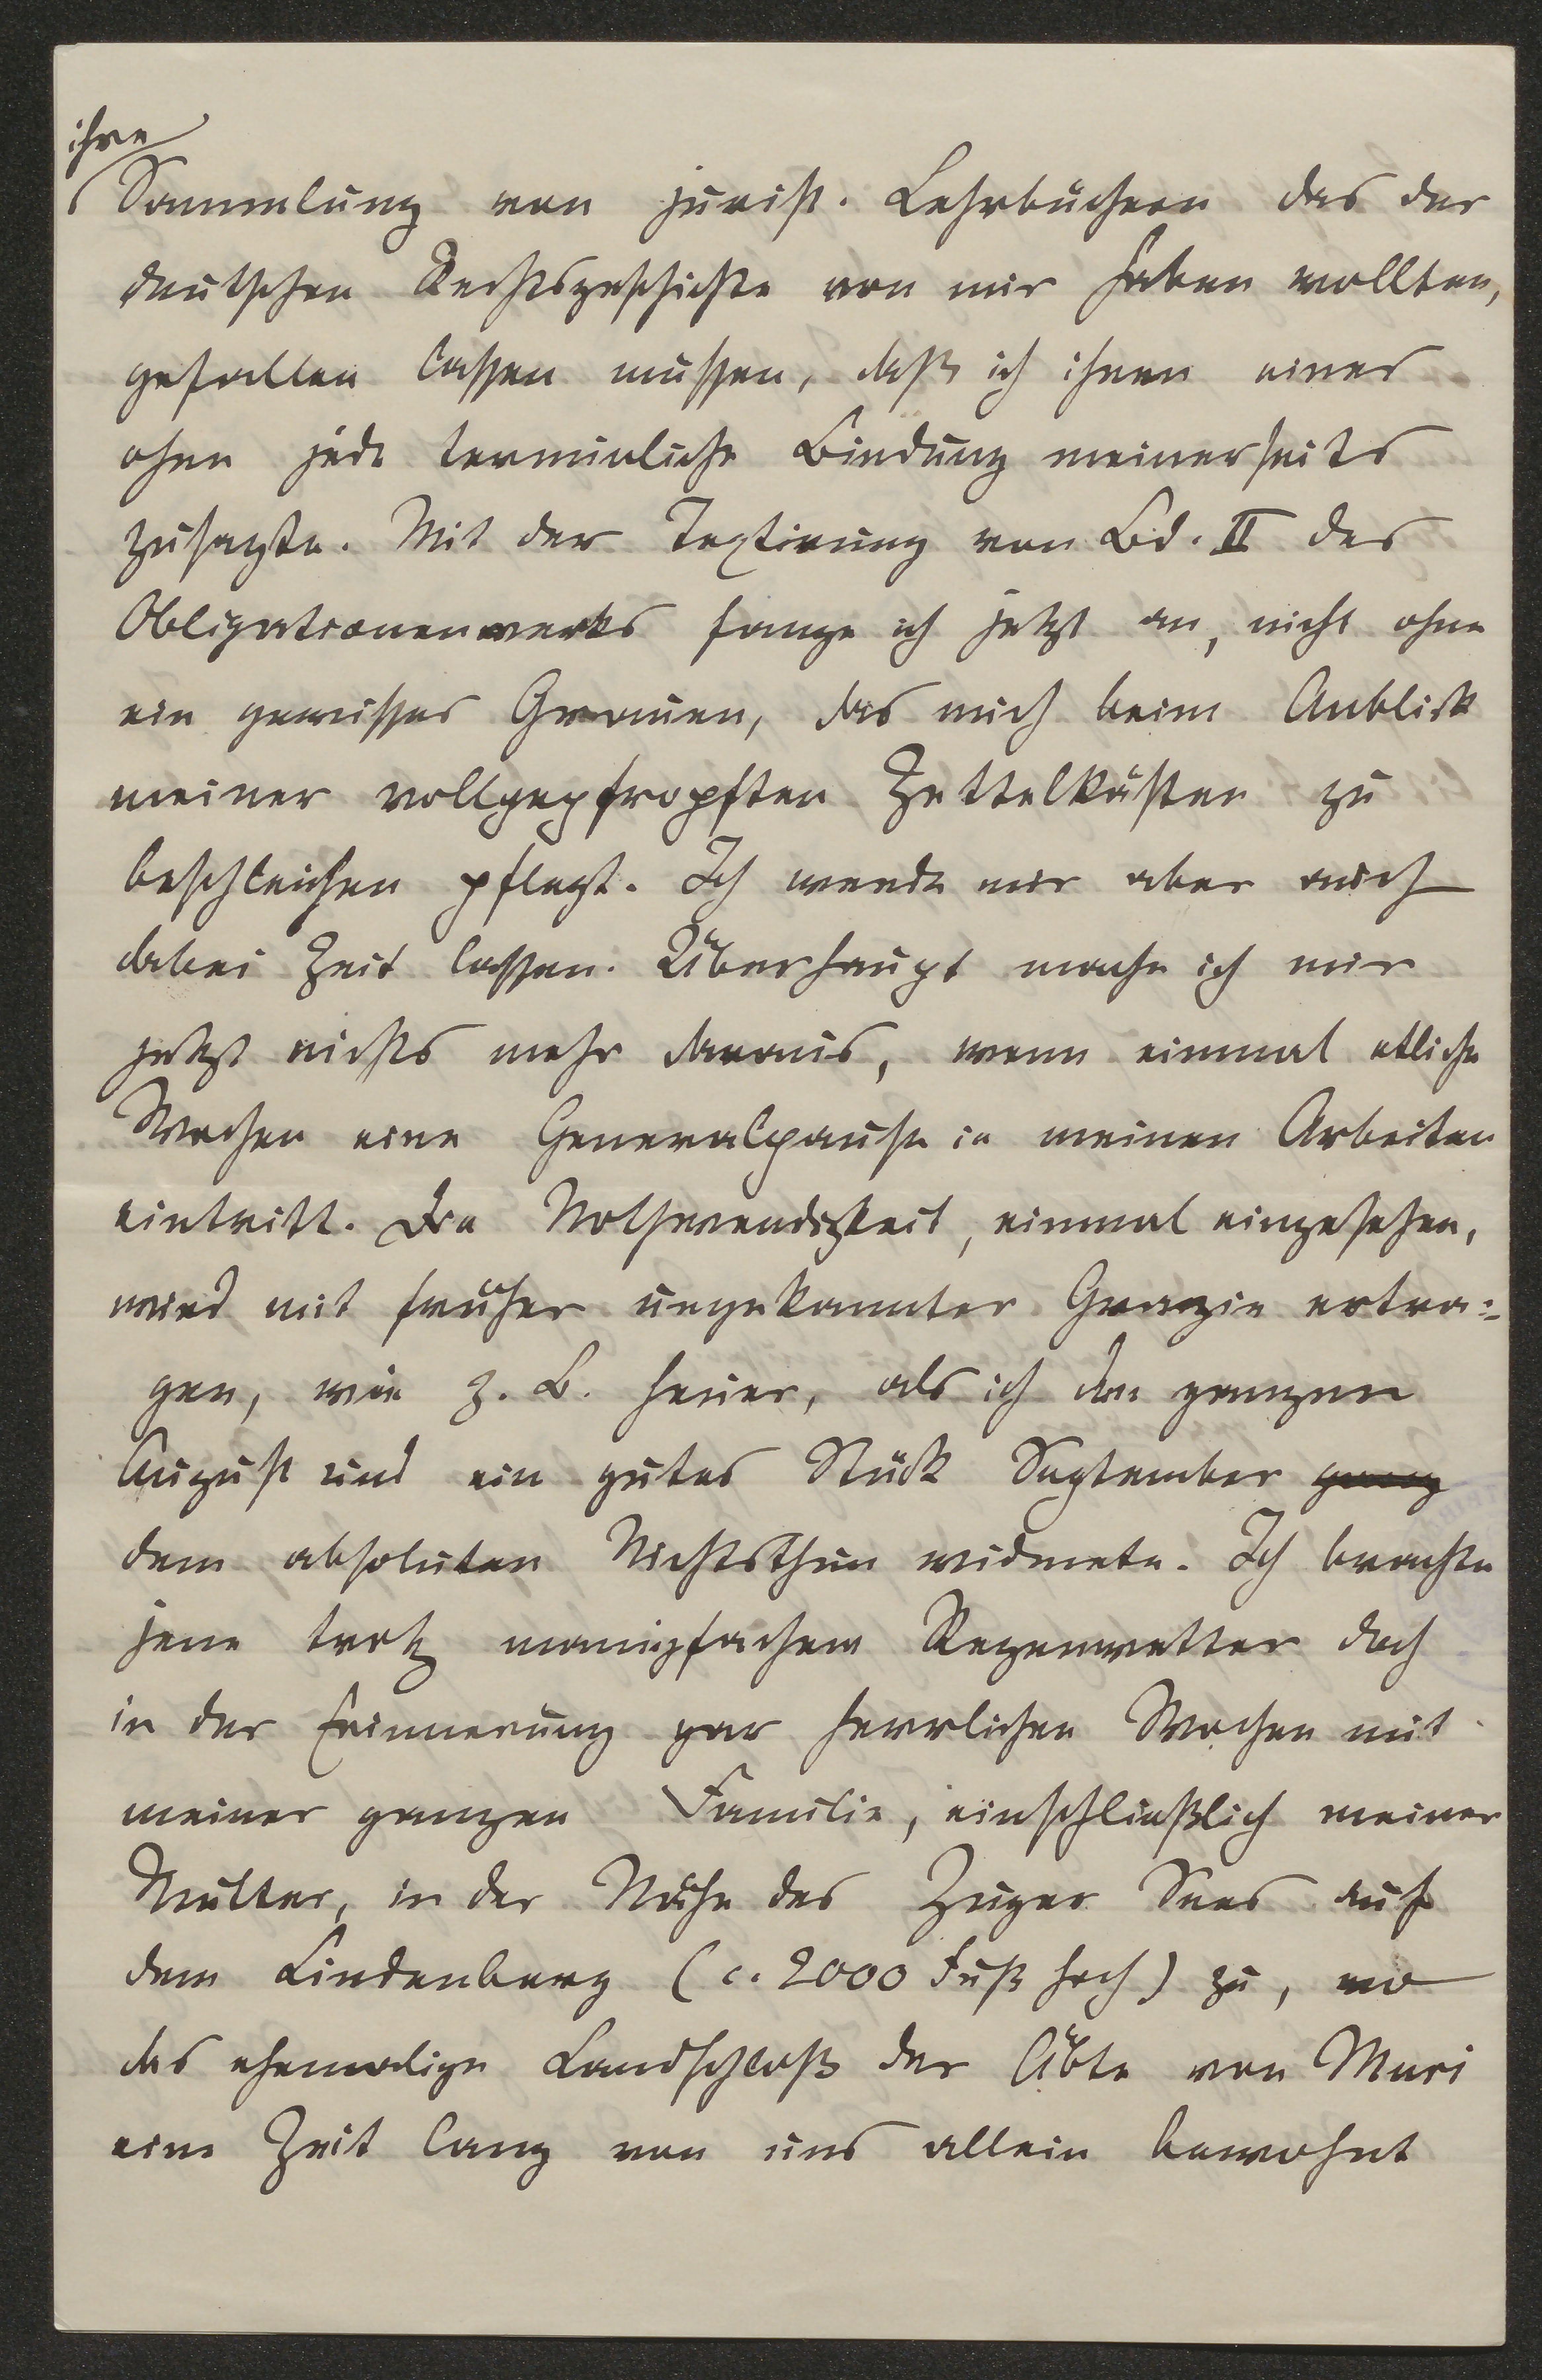 ihre
Sammlung von jurist. Lehrbüchern das der
deutschen Rechtsgeschichte von mir haben wollten,
gefallen lassen müssen, daß ich ihnen eines
ohne jede terminliche Bindung meinerseits
zusagte. Mit der Textirung von Bd. II des
Obligationenwerks fange ich jetzt an, nicht ohne
ein gewisses Grauen, das mich beim Anblick
meiner vollgepfropften Zettelkästen zu
beschleichen pflegt. Ich werde mir aber auch
dabei Zeit lassen. Überhaupt mache ich mir
jetzt nichts mehr daraus, wenn einmal etliche
Wochen eine Generalpause in meinen Arbeiten
eintritt. Die Nothwendigkeit, einmal eingesehen,
wird mit früher ungekannter Grazie ertra=
gen, wie z. B. heuer, als ich den ganzen
August und ein gutes Stück September ganz
dem absoluten Nichtsthun widmete. Ich brachte
jene trotz mannigfachem Regenwetter doch
in der Erinnerung gar herrlichen Wochen mit
meiner ganzen Familie, einschließlich meiner
Mutter, in der Nähe des Zuger Sees auf
dem Lindenberg (c. 2000 Fuß hoch) zu, wo
das ehemalige Landschloß der Äbte von Muri
eine Zeit lang von uns allein bewohnt